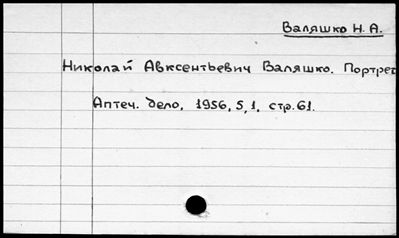 Валяшко Н. А.
Николай Авксентьевич Валяшко. Портрет
Аптеч. дело, 1956, 5, 1, стр. 61.